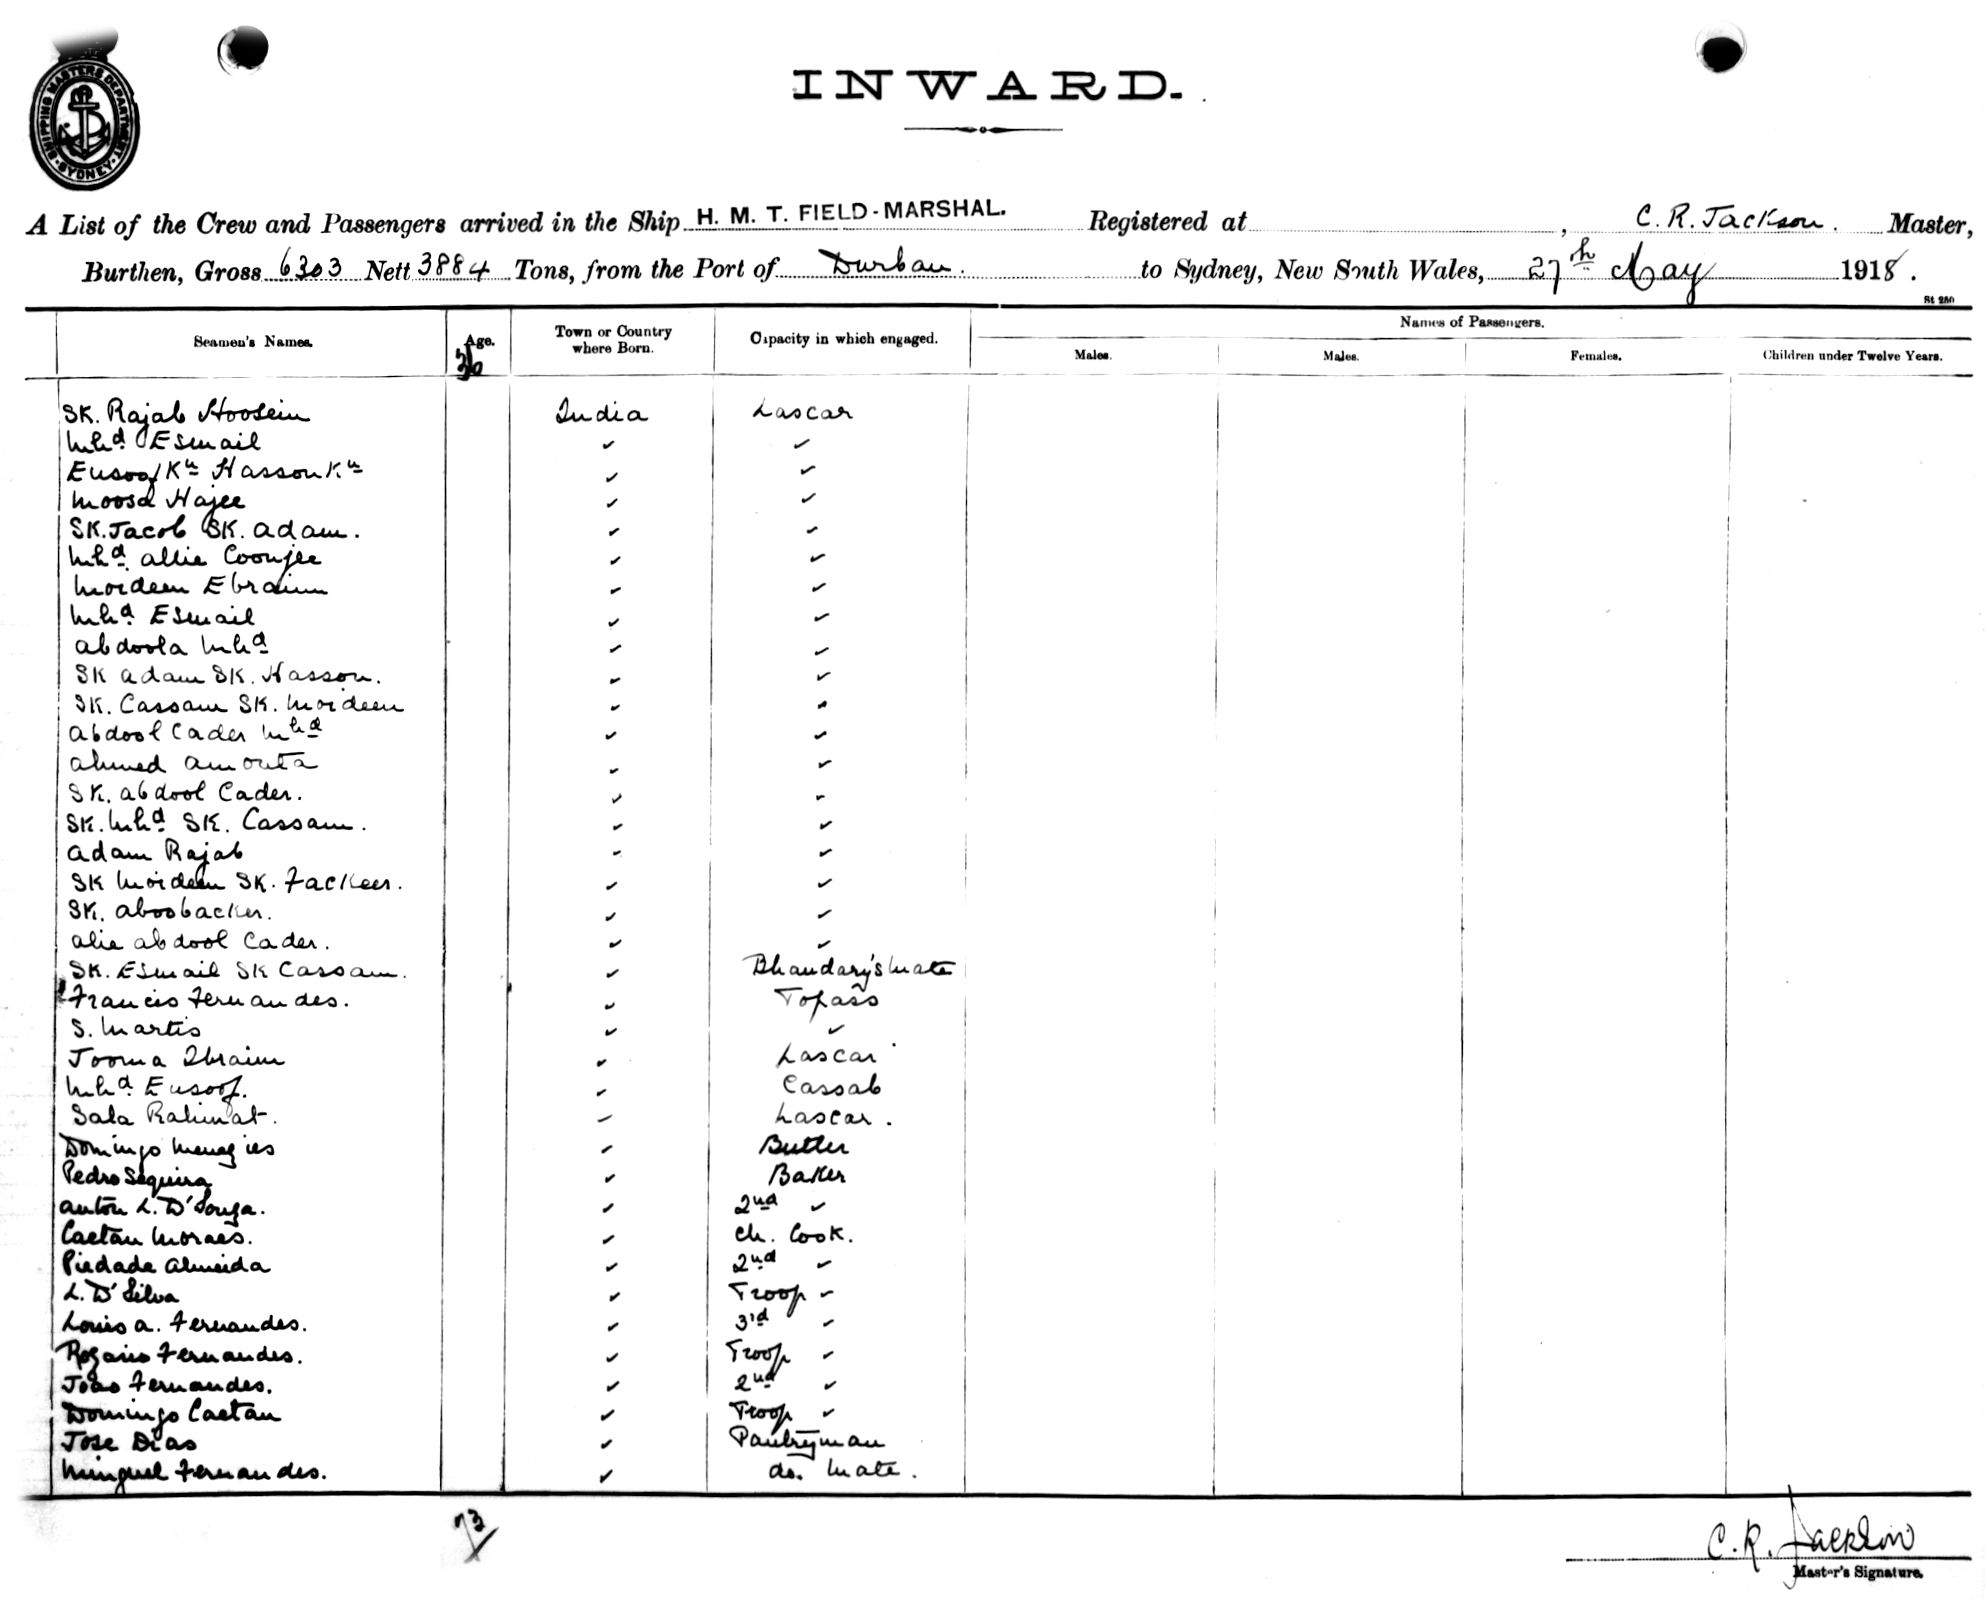 SHIPPING MASTERS DEPARTMENT SYDNEY
INWARD.
A List of the Crew and Passengers arrived in the Ship H. M. T. FIELD-MARSHAL. Registered at , C. R. Jackson. Master,
Burthen, Gross 6303 Nett 3884 Tons, from the Port of Durban. to Sydney, New South Wales, 27th May 1918.
St 250
Seamen's Names. Age. Town or Country where Born. Capacity in which engaged. Names of Passengers.
Males. Males. Females. Children under Twelve Years.
36
SK. Rajab Hoosein India Lascar
Mhd Esmail ✓ ✓
Eusoof Kn Hasson Kn ✓ ✓
Moosa Hajee ✓ ✓
SK. Jacob SK. Adam. ✓ ✓
Mhd. Allie Coonjee ✓ ✓
Moideen Ebraim ✓ ✓
Mhd. Esmail ✓ ✓
Abdoola Mhd ✓ ✓
SK Adam SK. Hasson. ✓ ✓
SK. Cassam SK. Moideen ✓ ✓
Abdool Cader Mhd ✓ ✓
Ahmed Amouta ✓ ✓
SK. Abdool Cader. ✓ ✓
SK. Mhd SK. Cassam. ✓ ✓
Adam Rajab ✓ ✓
SK Moideen SK. Fackeer. ✓ ✓
SK. Aboobacker. ✓ ✓
Alie Abdool Cader. ✓ ✓
SK. Esmail SK Cassam. ✓ Bhandary's Mate
Francis Fernandes. ✓ Topass
S. Martis ✓ ✓
Jooma Ibraim ✓ Lascar
Mhd Eusoof. ✓ Cassab
Sala Rahmat. ✓ Lascar.
Domingo Menezies ✓ Butler
Pedro Sequira ✓ Baker
Anton L. D'Souza. ✓ 2nd ✓
Caetan Moraes. ✓ Ch. Cook.
Piedade Almeida ✓ 2nd ✓
L. D'Silva ✓ Troop ✓
Louis A. Fernandes. ✓ 3rd ✓
Rozario Fernandes. ✓ Troop ✓
Joao Fernandes. ✓ 2nd ✓
Domingo Caetan ✓ Troop ✓
Jose Dias ✓ Pantryman
Minguel Fernandes. ✓ do. Mate.
73
C. R. Jackson
Master's Signature.